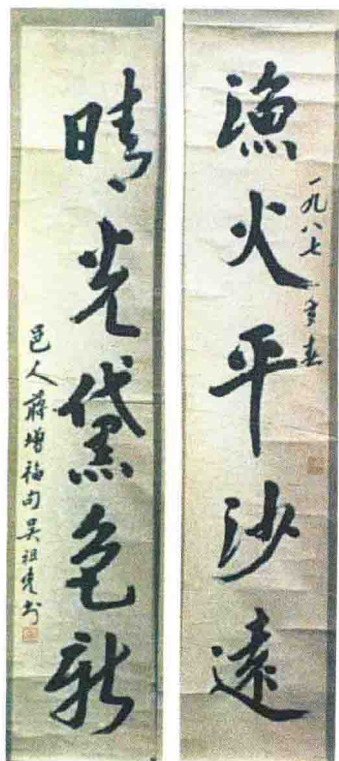 漁火平沙遠
一九八七年春
晴光黛色新
邑人蔣增福句吴祖书